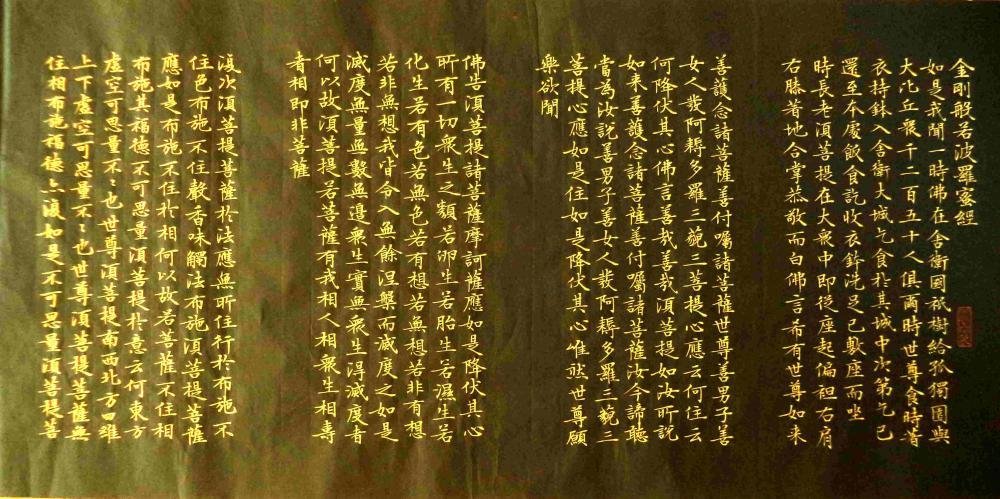 金剛般若波羅蜜經
如是我聞一時佛在舍衛國祇樹給孤獨園與
大比丘衆千二百五十人俱爾時世尊食時著
衣持鉢入舍衛大城乞食於其城中次第乞已
還至本處飯食訖收衣鉢洗足已敷座而坐
時長老須菩提在大衆中即從座起偏袒右肩
右膝著地合掌恭敬而白佛言希有世尊如來
善護念諸菩薩善付囑諸菩薩世尊善男子善
女人發阿耨多羅三藐三菩提心應云何住云
何降伏其心佛言善哉善哉須菩提如汝所說
如來善護念諸菩薩善付囑諸菩薩汝今諦聽
當為汝說善男子善女人發阿耨多羅三藐三
菩提心應如是住如是降伏其心唯然世尊願
樂欲聞
佛告須菩提諸菩薩摩訶薩應如是降伏其心
所有一切衆生之類若卵生若胎生若濕生若
化生若有色若無色若有想若無想若非有想
若非無想我皆令入無餘涅槃而滅度之如是
滅度無量無數無邊衆生實無衆生得滅度者
何以故須菩提若菩薩有我相人相衆生相壽
者相即非菩薩
復次須菩提菩薩於法應無所住行於布施不
住色布施不住聲香味觸法布施須菩提菩薩
應如是布施不住於相何以故若菩薩不住相
布施其福德不可思量須菩提於意云何東方
虛空可思量不〻也世尊須菩提南西北方四維
上下虛空可思量不〻也世尊須菩提菩薩無
住相布施福德亦復如是不可思量須菩提菩